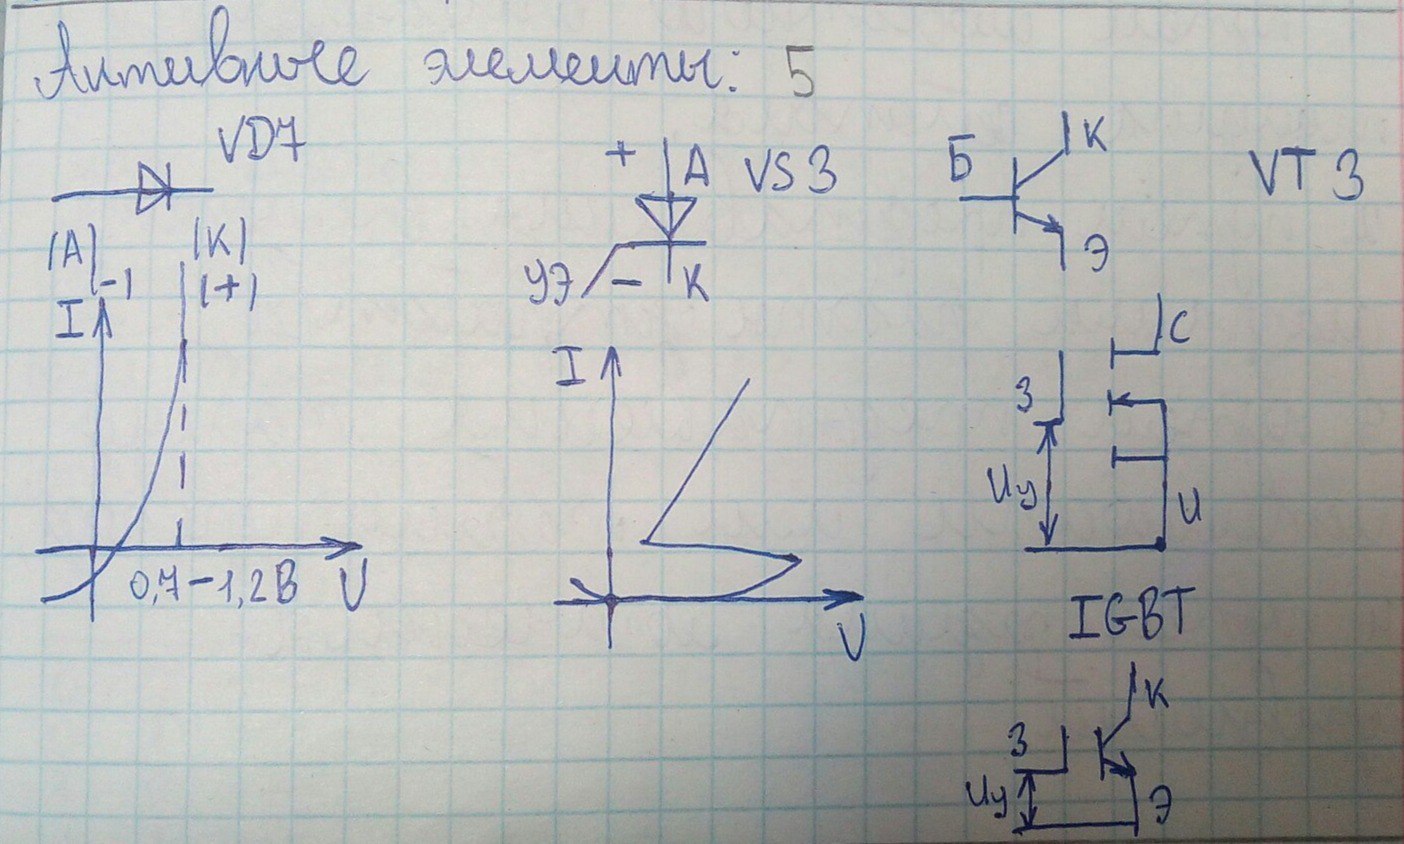 Активные элементы: 5
VD7
(A) (K)
(-) (+)
I
0,7-1,2В
V
+ A VS 3
УЭ - K
I
V
Б К VT 3
Э
С
З
Uу
И
IGBT
К
З
Uу
Э